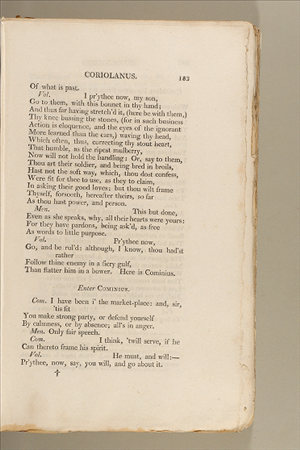 CORIOLANUS. 183
Of what is past.
Vol. I pr'ythee now, my son,
Go to them, with this bonnet in thy hand;
And thus far having stretch'd it, (here be with them,)
Thy knee bussing the stones, (for in such business
Action is eloquence, and the eyes of the ignorant
More learned than the ears,) waving thy head,
Which often, thus, correcting thy stout heart,
That humble, as the ripest mulberry,
Now will not hold the handling: Or, say to them,
Thou art their soldier, and being bred in broils,
Hast not the soft way, which, thou dost confess,
Were fit for thee to use, as they to claim,
In asking their good loves; but thou wilt frame
Thyself, forsooth, hereafter theirs, so far
As thou hast power, and person.
Men. This but done,
Even as she speaks, why, all their hearts were yours:
For they have pardons, being ask'd, as free
As words to little purpose.
Vol. Pr'ythee now,
Go, and be rul'd: although, I know, thou had'st
rather
Follow thine enemy in a fiery gulf,
Than flatter him in a bower. Here is Cominius.
Enter COMINIUS.
Com. I have been i' the market-place: and, sir,
'tis fit
You make strong party, or defend yourself
By calmness, or by absence; all's in anger.
Men. Only fair speech.
Com. I think, 'twill serve, if he
Can thereto frame his spirit.
Vol. He must, and will:—
Pr'ythee, now, say, you will, and go about it.